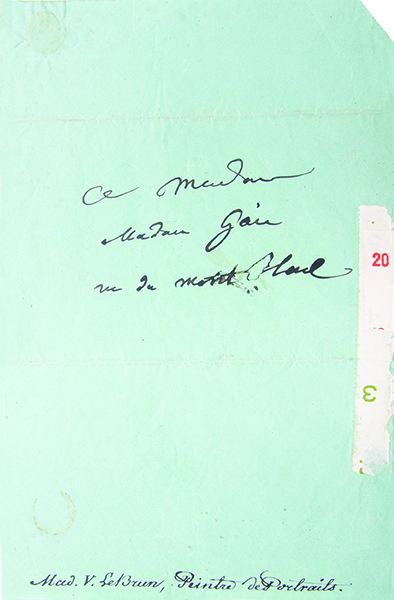 a Madame
Madame Gâu
rue du mont Blanc
20
3
Mad. V. LeBrun, Peintre de Portraits.